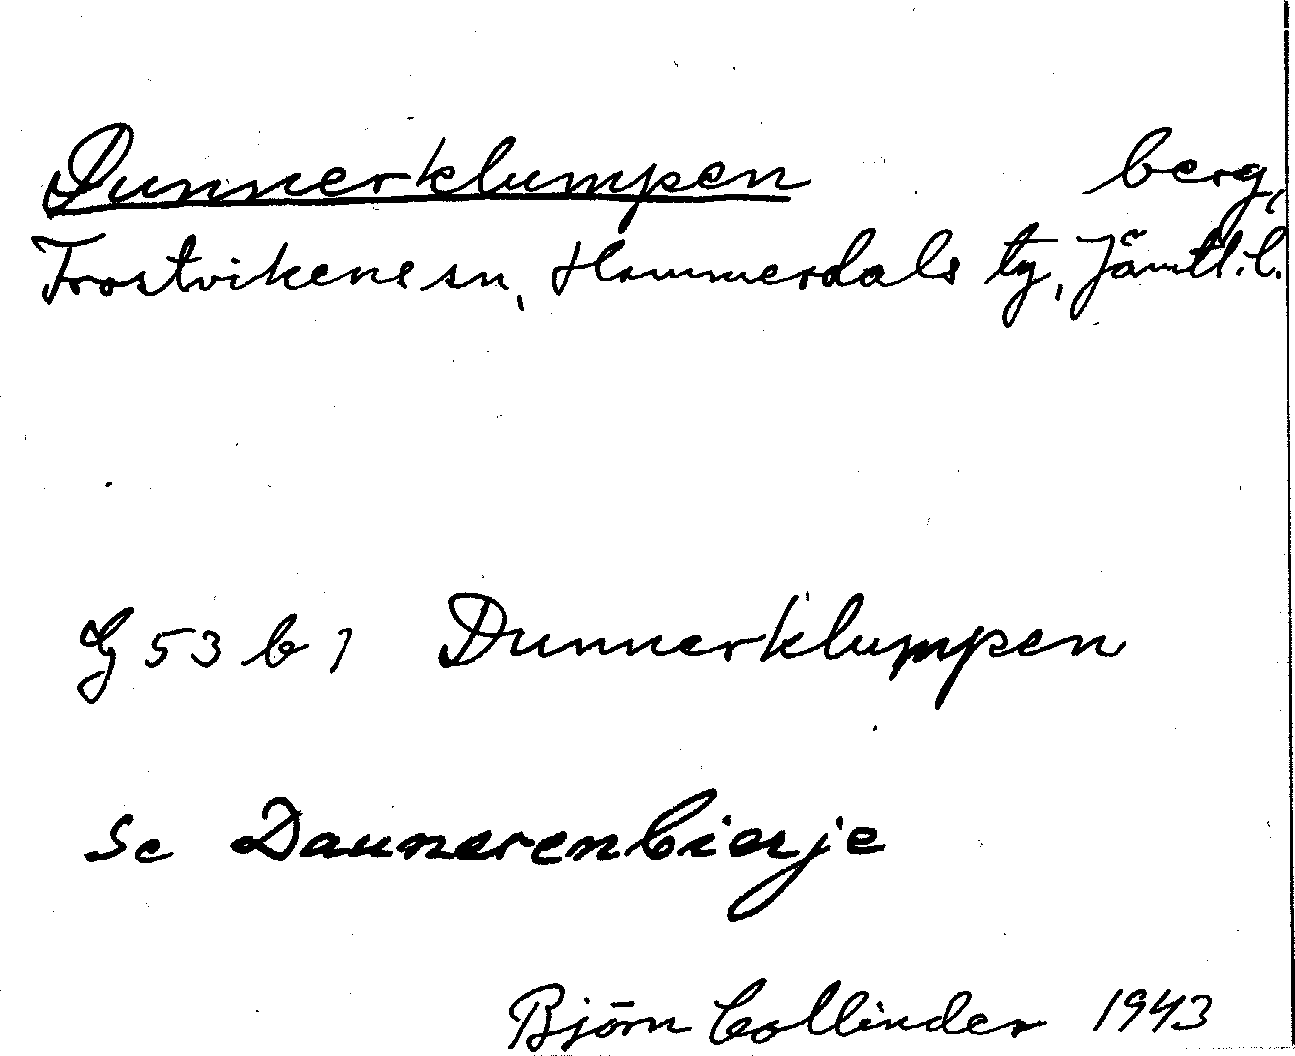 Dunnerklumpen berg,
Frostvikens sn, Hammerdals tg, Jämtl. l.
G 53 b 1 Dunnerklumpen
Se Daunerenbierje
Björn Collinder 1943